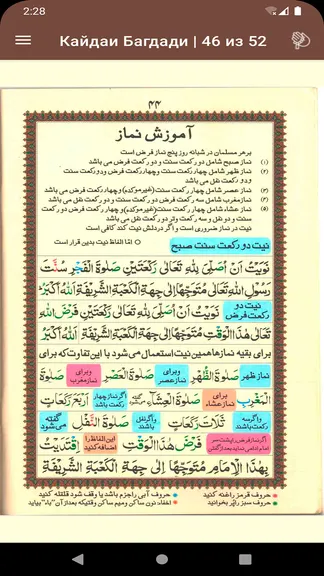 2:28
Кайдаи Багдади | 46 из 52
٤٤
آموزش نماز
بر هر مسلمان در شبانه روز پنج نماز فرض است
(۱) نماز صبح شامل دو رکعت سنت و دو رکعت فرض می باشد
(۲) نماز ظهر شامل چهار رکعت سنت و چهار رکعت فرض و دو رکعت سنت
و دو رکعت نفل می باشد
(۳) نماز عصر شامل چهار رکعت سنت (غیرموکده) و چهار رکعت فرض می باشد
(۴) نماز مغرب شامل سه رکعت فرض و دو رکعت سنت و دو رکعت نفل می باشد
(۵) نماز عشاء شامل چهار رکعت سنت (غیرموکده) و چهار رکعت فرض و دو رکعت
سنت و دو نفل و سه رکعت وتر و دو رکعت نفل می باشد
نیت در نماز ضروری است و اگر در دلش نیت کند کافی است
اما الفاظ نیت بدین قرار است
نیت دو رکعت سنت صبح
نَوَيْتُ اَنْ اُصَلِّىَ لِلّٰهِ تَعَالٰى رَكْعَتَيْنِ صَلٰوةَ الْفَجْرِ سُنَّتُ
رَسُوْلِ اللّٰهِ تَعَالٰى مُتَوَجِّهًا اِلٰى جِهَةِ الْكَعْبَةِ الشَّرِيْفَةِ اَللّٰهُ اَكْبَرُ
نیت دو رکعت فرض
نَوَيْتُ اَنْ اُصَلِّىَ لِلّٰهِ تَعَالٰى رَكْعَتَيْنِ فَرْضُ اللّٰهِ
تَعَالٰى هٰذَا الْوَقْتِ مُتَوَجِّهًا اِلٰى جِهَةِ الْكَعْبَةِ الشَّرِيْفَةِ اَللّٰهُ اَكْبَرُ
برای بقیه نمازها همین نیت استعمال می شود با این تفاوت که برای
نماز ظهر صَلٰوةَ الظُّهْرِ و برای نماز عصر صَلٰوةَ الْعَصْرِ و برای نماز مغرب صَلٰوةَ
الْمَغْرِبِ و برای نماز عشاء صَلٰوةَ الْعِشَاءِ گفته و اگر نماز چهار رکعت باشد اَرْبَعَ رَكْعَاتٍ
و اگر سه رکعت باشد ثَلَاثَ رَكْعَاتٍ و اگر نفل باشد صَلٰوةَ النَّفْلِ گفته می شود
اگر نماز فرض را پشت سر امام ادا می نماید بعد از گفتن فَرْضَ هٰذَا الْوَقْتِ این الفاظ را اضافه کنید اِقْتَدَيْتُ
بِهٰذَا الْاِمَامِ مُتَوَجِّهًا اِلٰى جِهَةِ الْكَعْبَةِ الشَّرِيْفَةِ
حروف قرمز را غنه کنید
حروف آبی را جزم باشد یا وقف شود قلقله کنید
حروف سبز را پر بخوانید
اخفاء: نون ساکن و میم ساکن وقتیکه بعد از آن "باء" بیاید